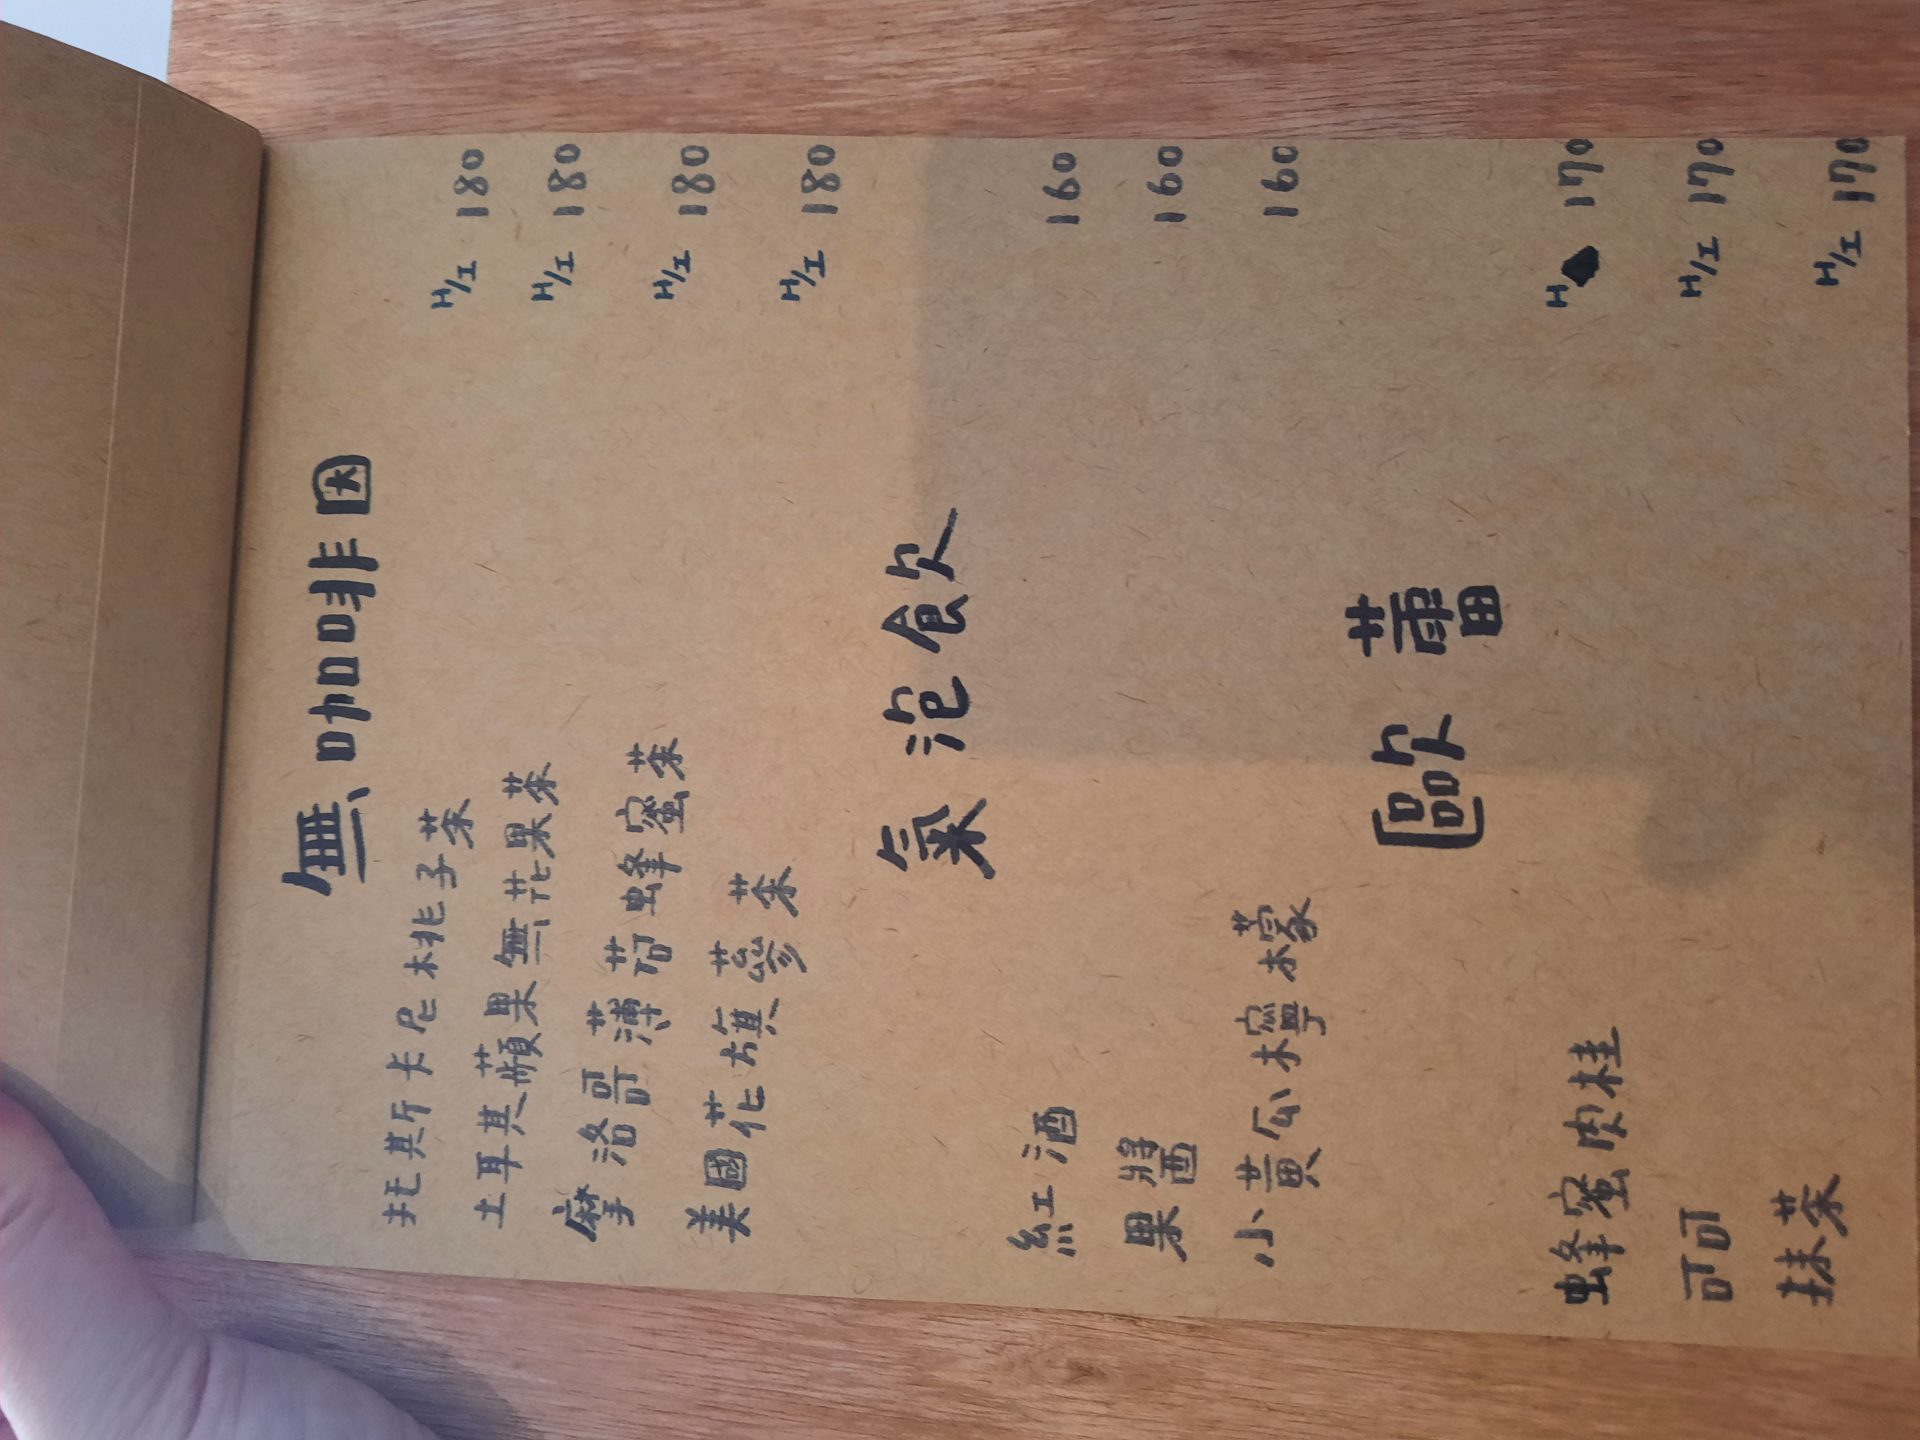 無咖啡因
托斯卡尼桃子茶 H/I 180
土耳其蘋果無花果茶 H/I 180
摩洛哥薄荷蜂蜜茶 H/I 180
美國花旗蔘茶 H/I 180
氣泡飲
紅酒 160
果醬 160
小黃瓜檸檬 160
歐蕾
蜂蜜肉桂 H 170
可可 H/I 170
抹茶 H/I 170